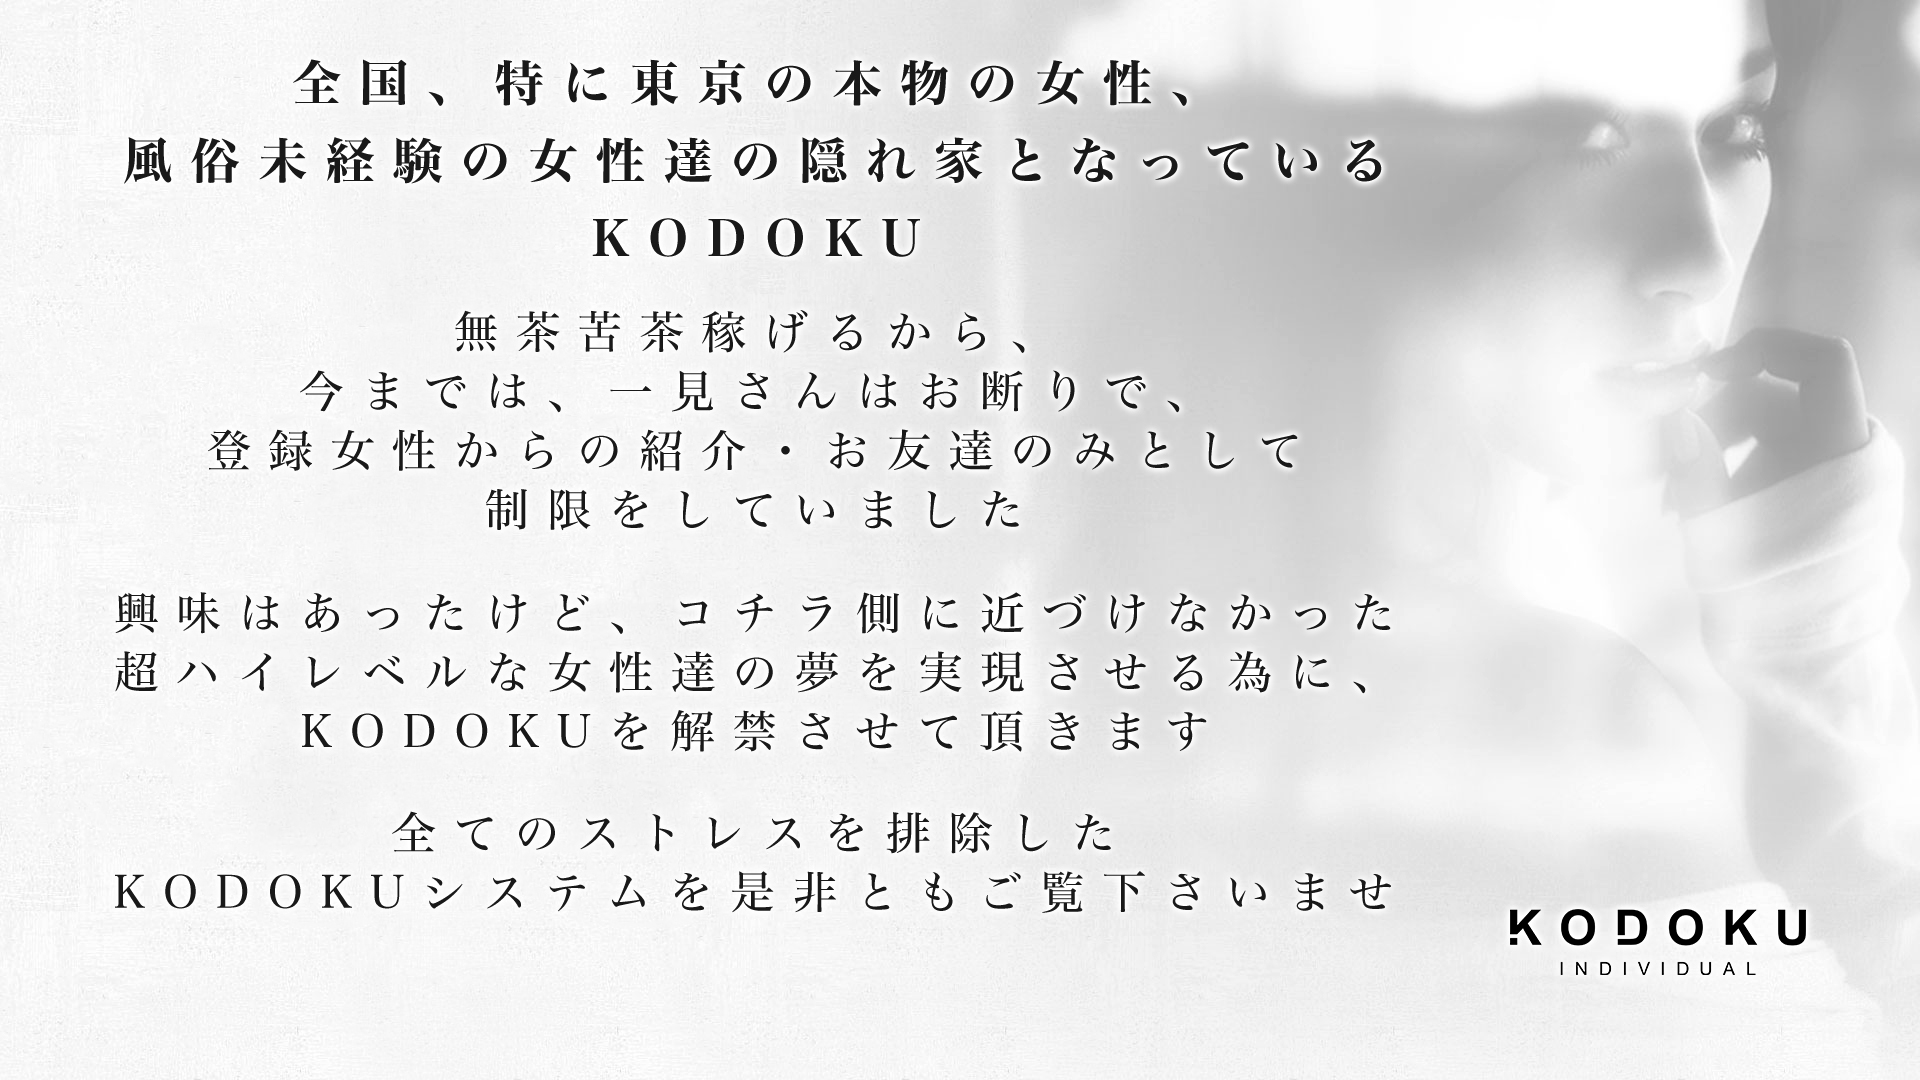 全国、特に東京の本物の女性、
風俗未経験の女性達の隠れ家となっている
KODOKU
無茶苦茶稼げるから、
今までは、一見さんはお断りで、
登録女性からの紹介・お友達のみとして
制限をしていました
興味はあったけど、コチラ側に近づけなかった
超ハイレベルな女性達の夢を実現させる為に、
KODOKUを解禁させて頂きます
全てのストレスを排除した
KODOKUシステムを是非ともご覧下さいませ
KODOKU
INDIVIDUAL